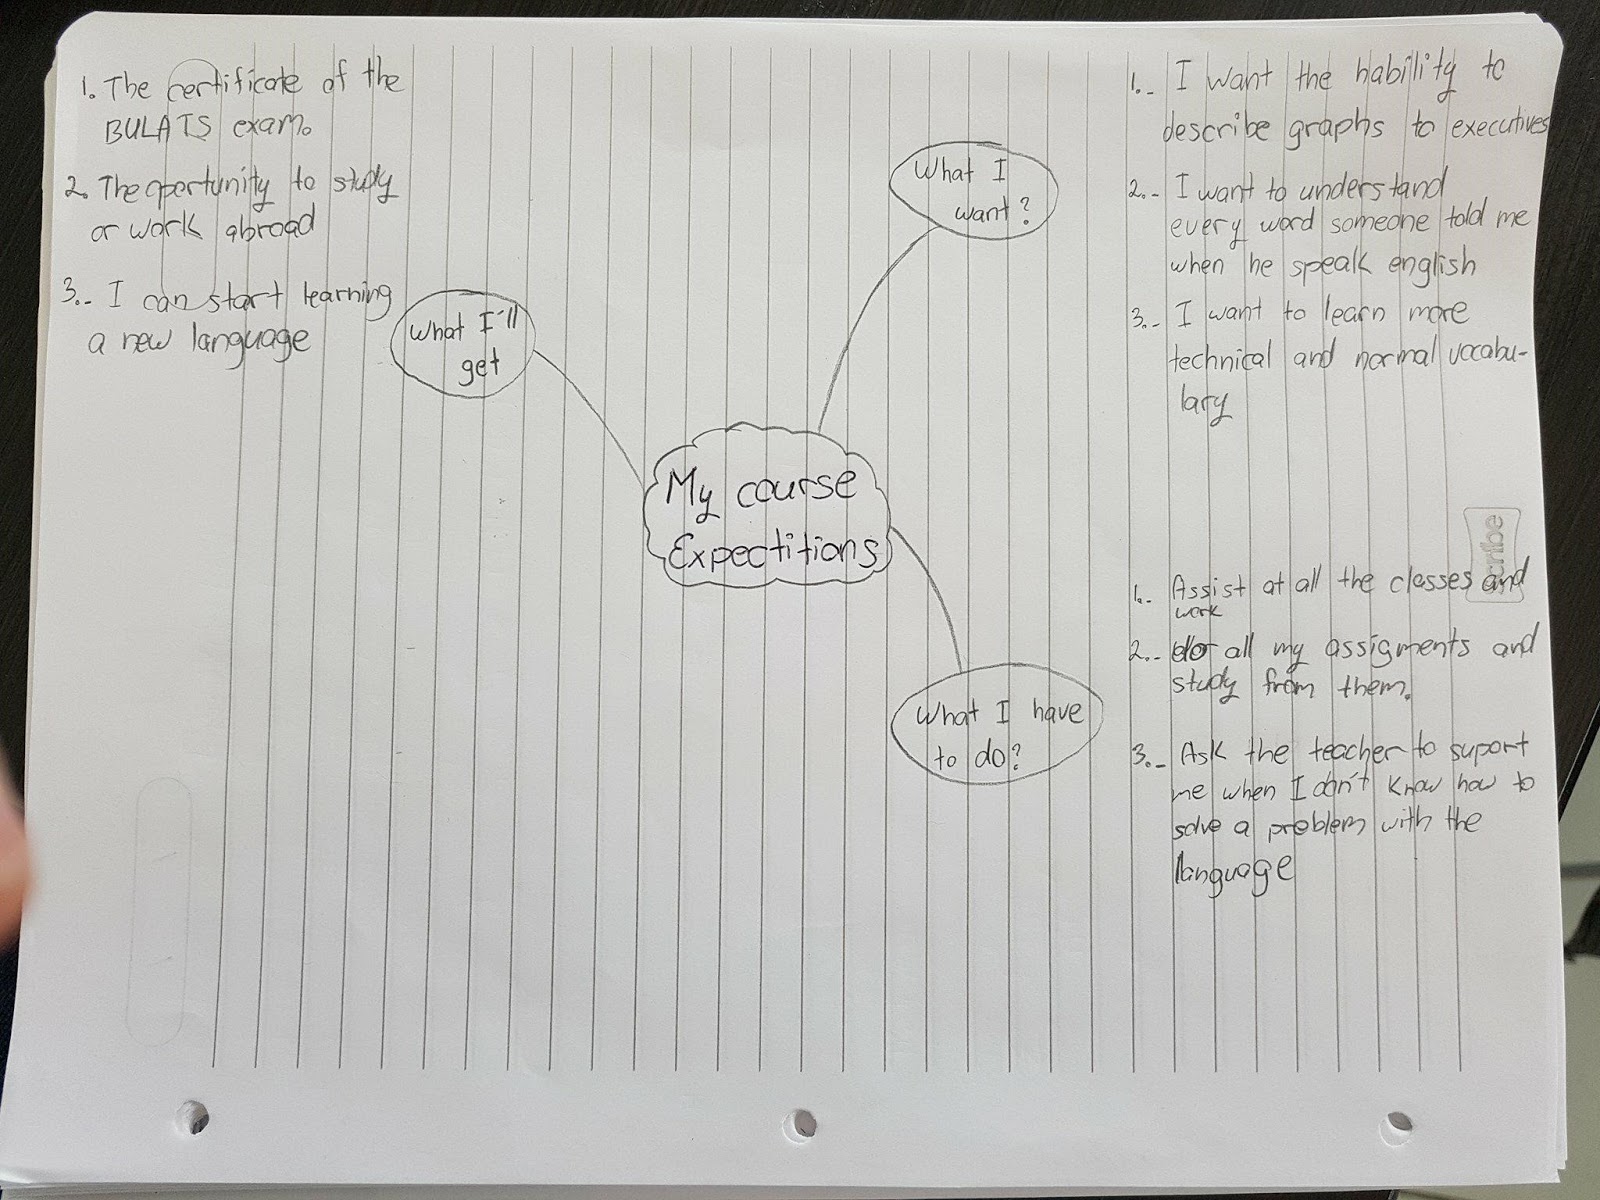 1. The certificate of the
BULATS exam.
2. The oportunity to study
or work abroad
3.- I can start learning
a new language
What I'll
get
What I
want?
1.- I want the hability to
describe graphs to executives
2.- I want to understand
every word someone told me
when he speak english
3.- I want to learn more
technical and normal vocabu-
lary
My course
Expectitions
scribe
What I have
to do?
1.- Assist at all the classes and
work
2.- do all my assigments and
study from them.
3.- Ask the teacher to suport
me when I don't know how to
solve a problem with the
language